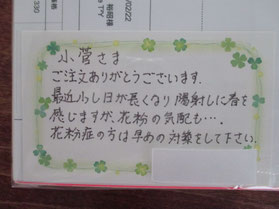 小菅さま
ご注文ありがとうございます.
最近少し日が長くなり陽射しに春を
感じますが、花粉の気配も….
花粉症の方は早めの対策をして下さい.
330
/02/22